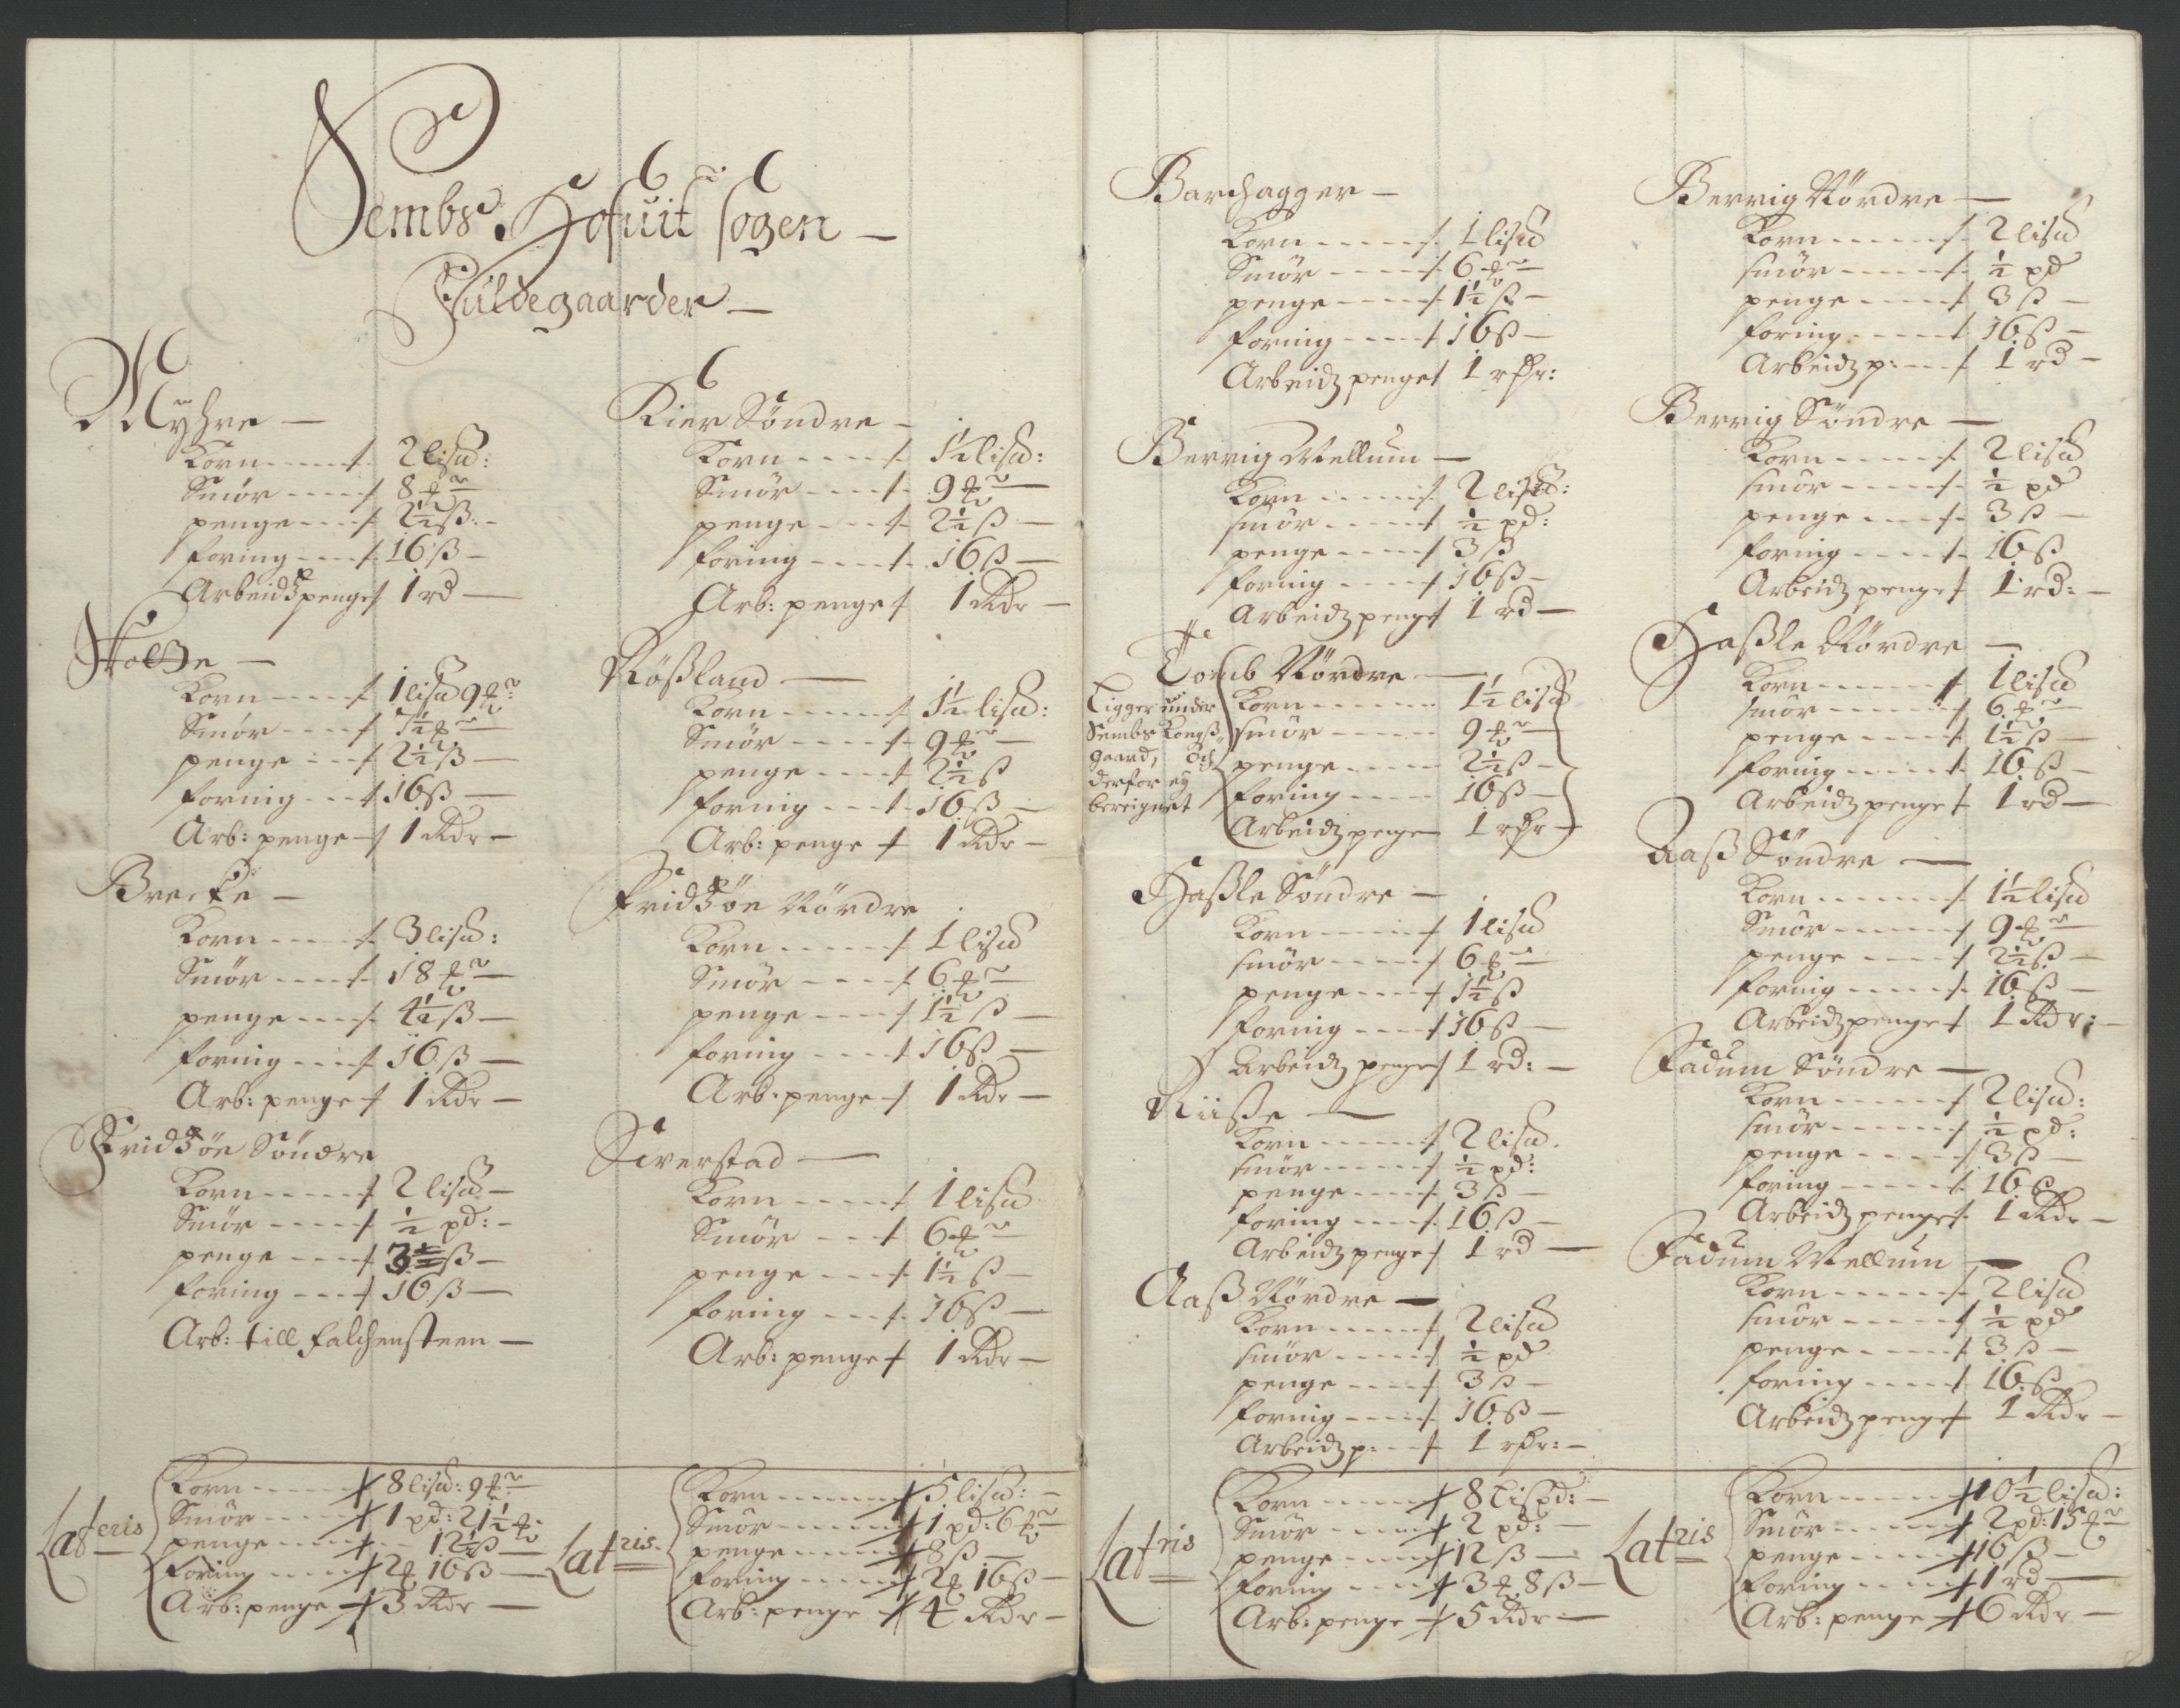 Sembs Hofuit sogen —
Fuldegaarder —
Myhre —
Korn 2 lisd:
Smör 8 ℔r
penge 2½ ß —
foring 16 ß —
Arbeids penge 1 rd —
Holtte —
Korn 1 lisd 9 ℔r:
Smör 7½ ℔r
penge 2½ ß —
foring 16 ß —
Arb: penge 1 Rdr —
Brecke —
Korn 3 lisd:
Smör 18 ℔r
penge 4½ ß —
foring 16 ß —
Arb: penge 1 Rdr —
Fridzöe Söndre
Korn 2 lisd —
Smör ½ pd: —
penge 3 ß —
foring 16 ß —
Arb: till falchensteen —
Lateris
Korn 8 lisd: 9 ℔r
Smör 1 pd: 21½ ℔:
penge 12½ ß —
foring 2 ℔ 16 ß —
Arb: penge 3 Rdr —
Kier Söndre —
Korn 1½ lisd:
Smör 9 ℔r —
penge 2½ ß —
foring 16 ß —
Arb: penge 1 Rdr —
Rößland —
Korn 1½ lisd:
Smör 9 ℔r —
penge 2½ ß
foring 16 ß —
Arb: penge 1 Rdr —
Fridzöe Nördre
Korn 1 lisd
Smör 6 ℔r
penge 1½ ß —
foring 16 ß —
Arb: penge 1 Rdr —
Siverstad —
Korn 1 lisd
Smör 6 ℔r
penge 1½ ß —
foring 16 ß —
Arb: penge 1 Rdr —
Latris.
Korn 5 lisd: —
Smör 1 pd: 6 ℔r
penge 8 ß —
foring 2 ℔ 16 ß —
Arb: penge 4 Rdr —
Barchagger —
Korn 1 lisd
Smör 6 ℔r —
penge 1½ ß —
foring 16 ß —
Arbeidz penge 1 rdr:
Bervig Mellum —
Korn 2 lispd:
smör ½ pd:
penge 3 ß
foring 16 ß —
Arbeidz penge 1 rd —
Tomb Nördre —
Ligger under
Sembs Kongß
gaard, Och
derfor ey
bereignet
Korn 1½ lisd
smör 9 ℔r
penge 2½ ß —
foring 16 ß —
Arbeidz penge 1 rdr —
Haßle Söndre —
Korn 1 lisd
smör 6 ℔r
penge 1½ ß
foring 16 ß —
Arbeidz penge 1 rd: —
Riiße —
Korn 2 lisd.
smör ½ pd:
penge 3 ß —
foring 16 ß —
Arbeidz penge 1 rd —
Aaß Nördre —
Korn 2 lisd
smör ½ pd
penge 3 ß —
foring 16 ß —
Arbeidz p: 1 rdr: —
Latris
Korn 8 lispd: —
Smör 2 pd: —
penge 12 ß —
foring 3 ℔ 8 ß —
Arb: penge 5 Rdr —
Bervig Nördre —
Korn 2 lisd
smör ½ pd
penge 3 ß —
foring 16 ß —
Arbeidz p: 1 rd —
Bervig Söndre —
Korn 2 lisd
smör ½ pd
penge 3 ß —
foring 16 ß
Arbeidz penge 1 rd: —
Haßle Nördre —
Korn 1 lisd
smör 6 ℔r
penge 1½ ß —
foring 16 ß —
Arbeidz penge 1 rd —
Aaß Söndre —
Korn 1½ lisd
Smör 9 ℔r
penge 2½ ß —
foring 16 ß —
Arbeidz penge 1 Rdr: —
Fadum Söndre —
Korn 2 lisd:
smör ½ pd:
penge 3 ß —
foring 16 ß
Arbeidz penge 1 Rdr —
Fadum Mellum —
Korn 2 lisd
smör ½ pd
penge 3 ß —
foring 16 ß
Arbeidz penge 1 Rdr —
Latris
Korn 10½ lisd:
Smör 2 pd: 15 ℔r
penge 16 ß —
foring 1 rd —
Arb: penge 6 Rdr —